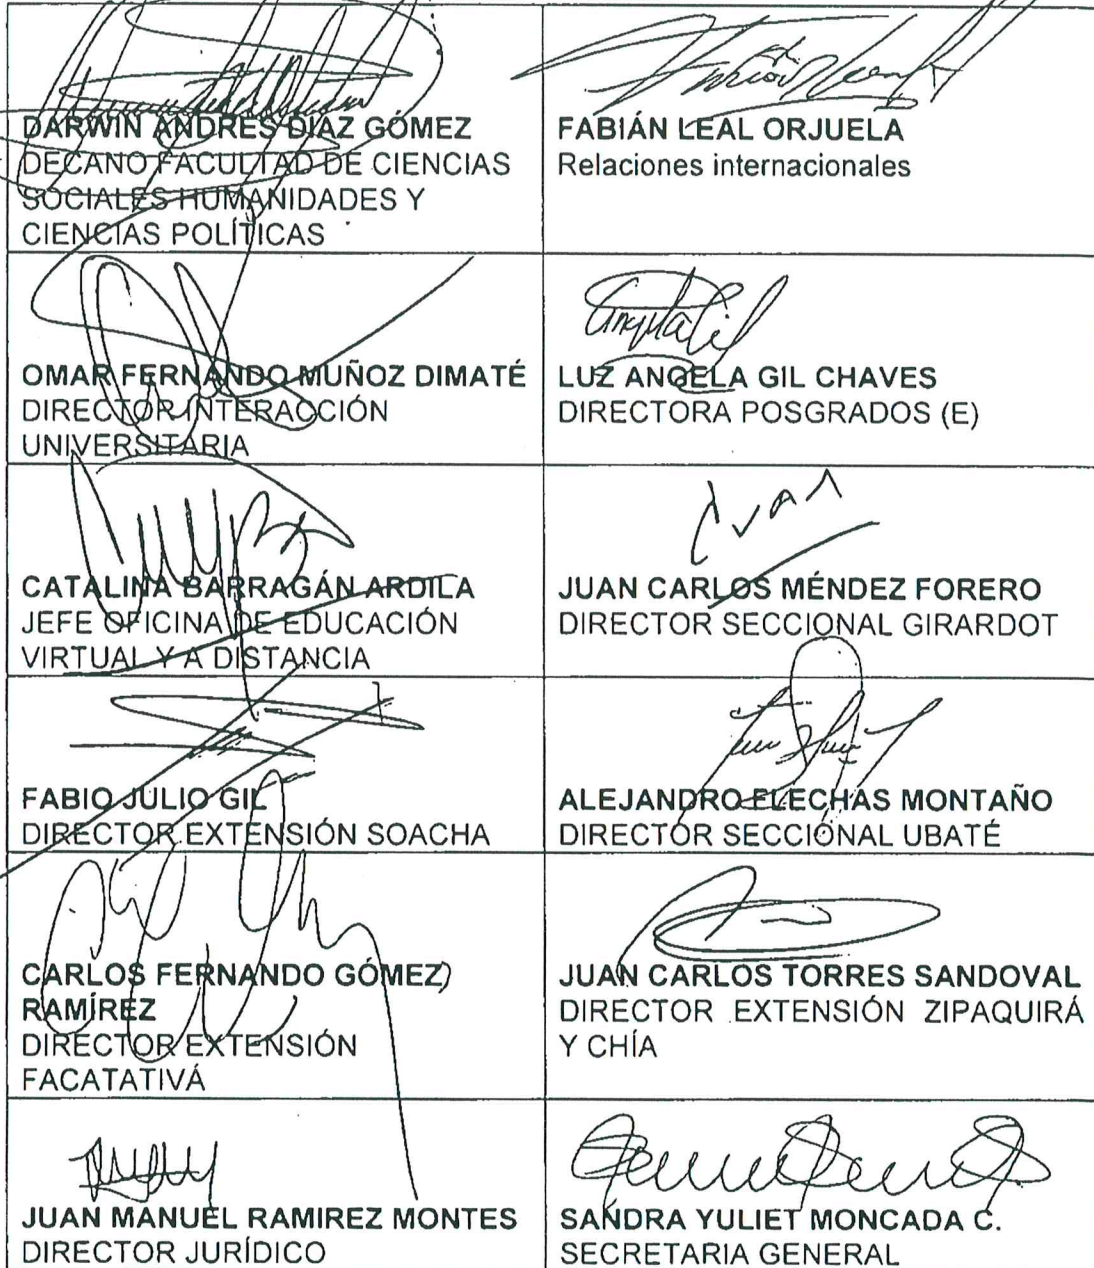 DARWIN ANDRES DIAZ GÓMEZ
DECANO FACULTAD DE CIENCIAS
SOCIALES HUMANIDADES Y
CIENCIAS POLÍTICAS
FABIÁN LEAL ORJUELA
Relaciones internacionales
OMAR FERNANDO MUÑOZ DIMATÉ
DIRECTOR INTERACCIÓN
UNIVERSITARIA
LUZ ANGELA GIL CHAVES
DIRECTORA POSGRADOS (E)
CATALINA BARRAGÁN ARDILA
JEFE OFICINA DE EDUCACIÓN
VIRTUAL Y A DISTANCIA
JUAN CARLOS MÉNDEZ FORERO
DIRECTOR SECCIONAL GIRARDOT
FABIO JULIO GIL
DIRECTOR EXTENSIÓN SOACHA
ALEJANDRO FLECHAS MONTAÑO
DIRECTOR SECCIONAL UBATÉ
CARLOS FERNANDO GÓMEZ
RAMÍREZ
DIRECTOR EXTENSIÓN
FACATATIVÁ
JUAN CARLOS TORRES SANDOVAL
DIRECTOR EXTENSIÓN ZIPAQUIRÁ
Y CHÍA
JUAN MANUEL RAMIREZ MONTES
DIRECTOR JURÍDICO
SANDRA YULIET MONCADA C.
SECRETARIA GENERAL